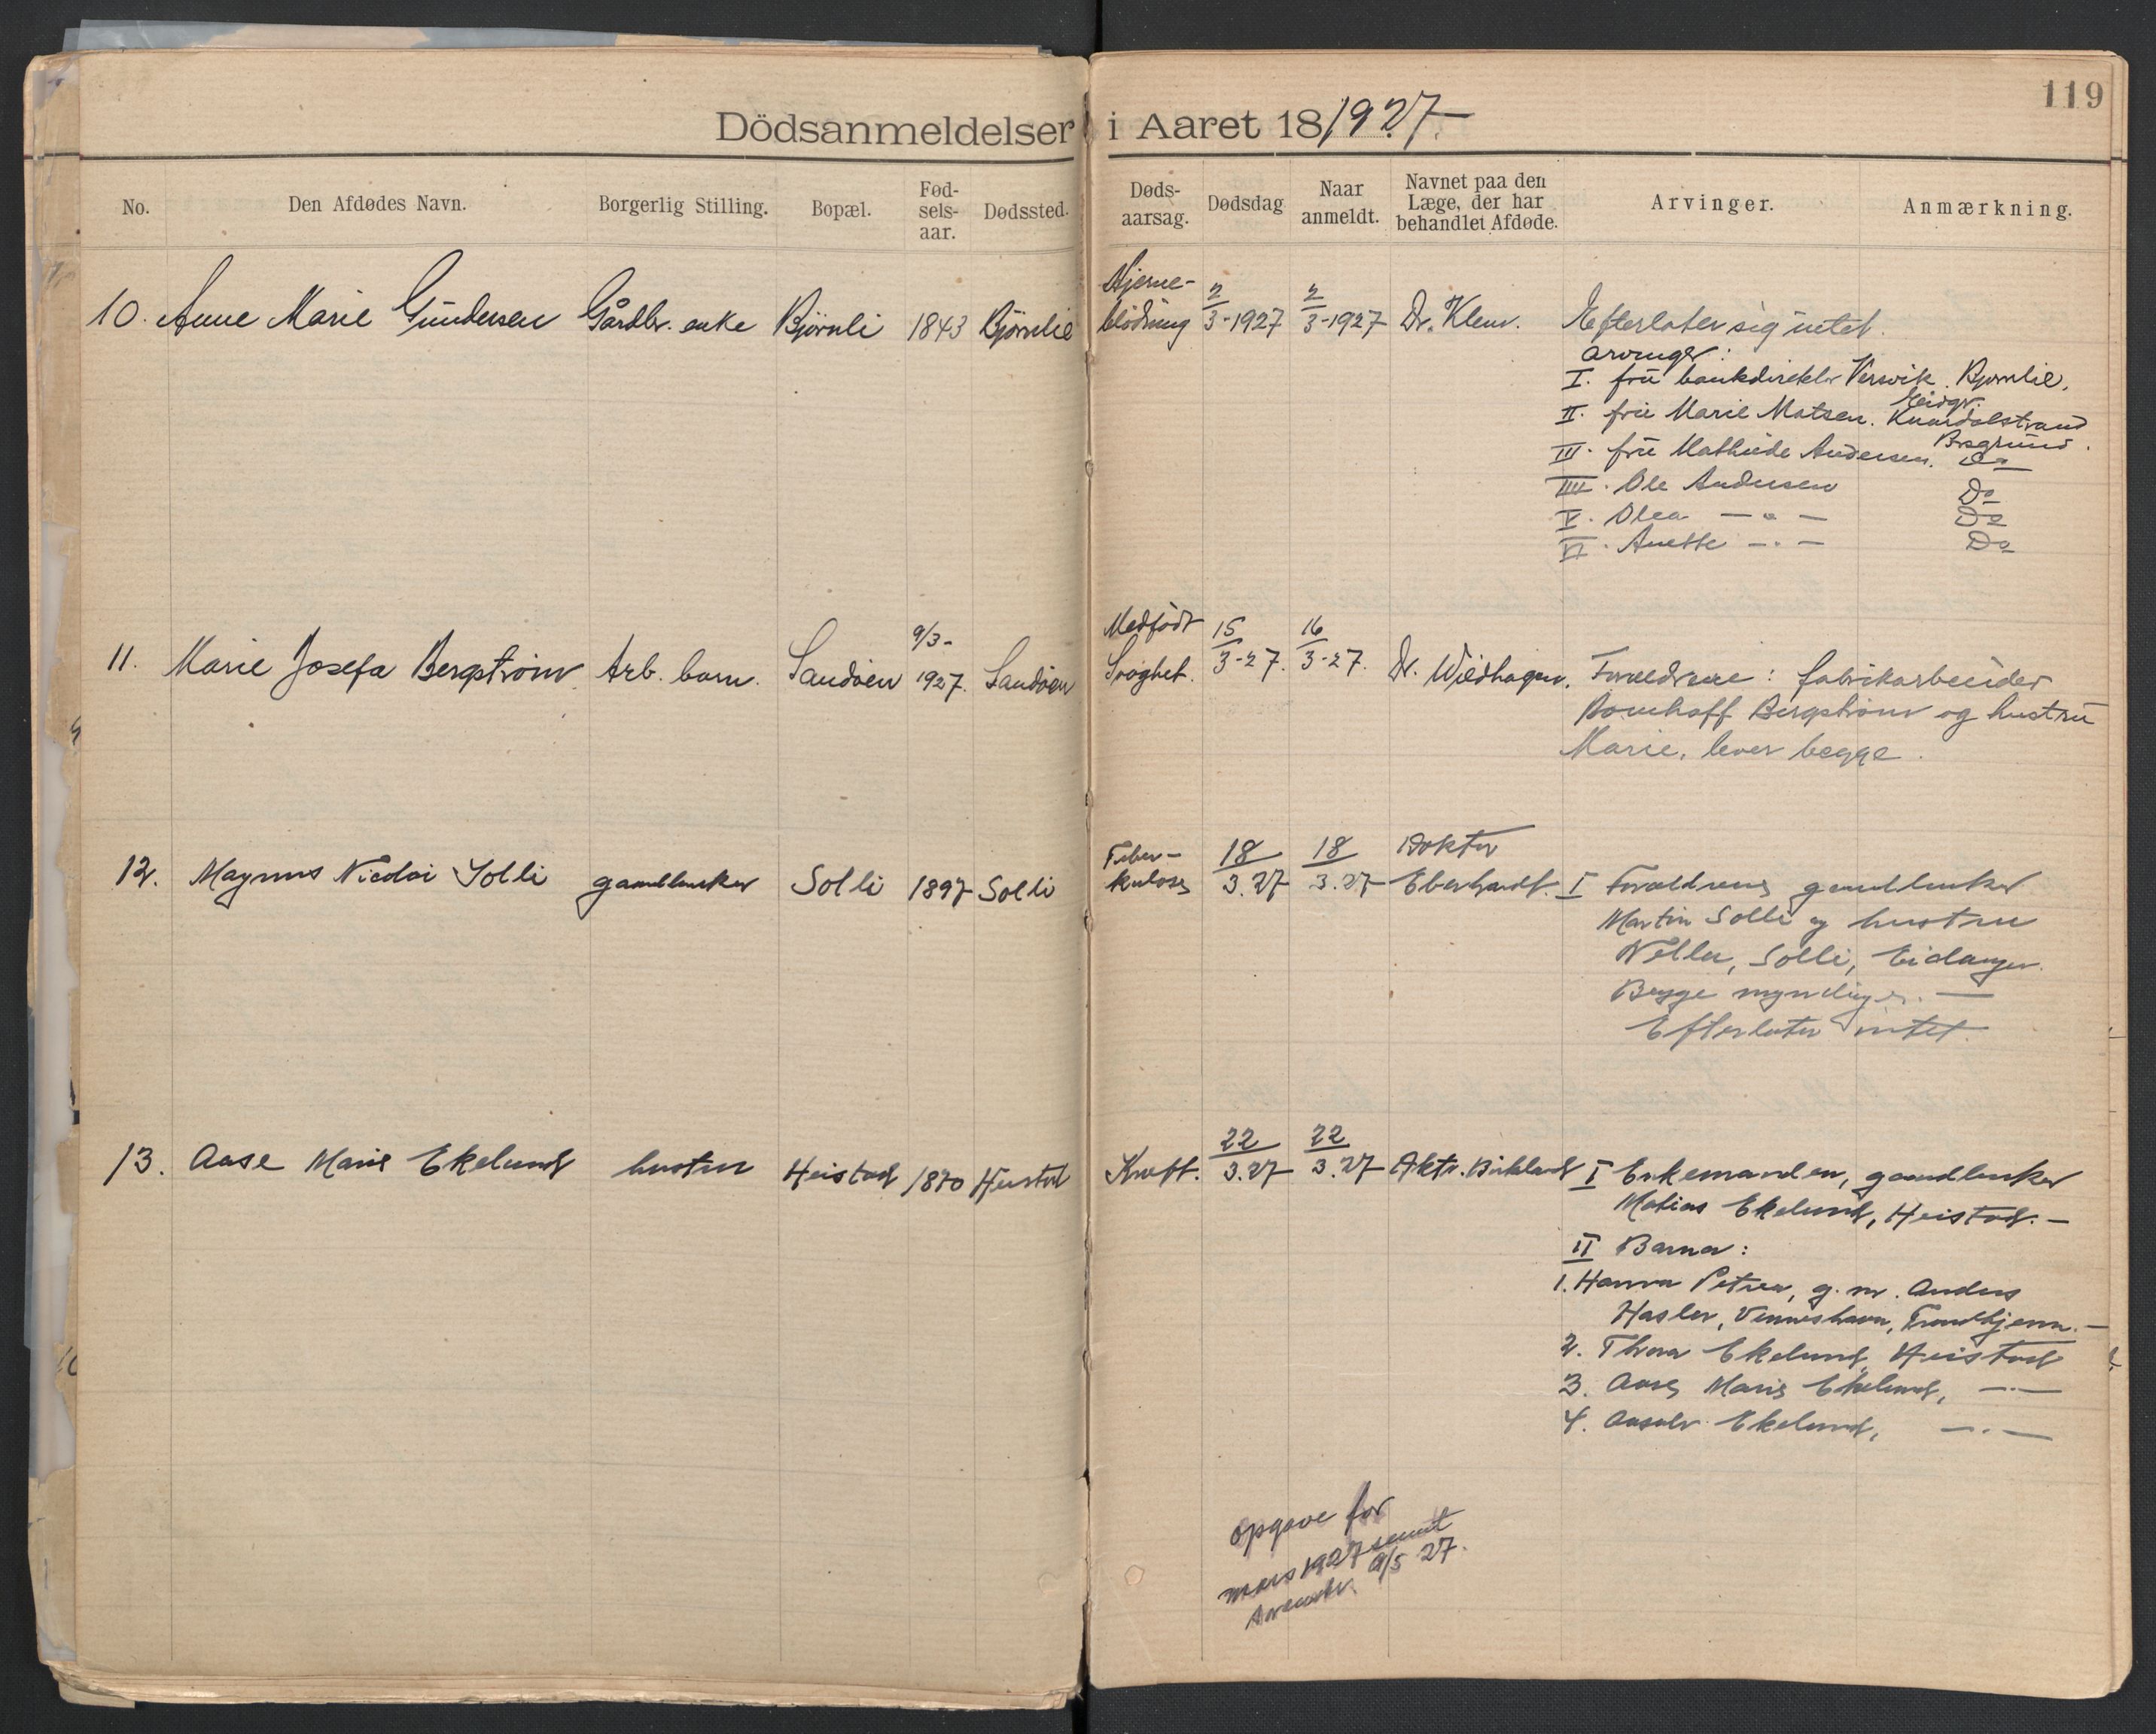 119
Dödsanmeldelser i Aaret 18/1927.
No. Den Afdødes Navn. Borgerlig Stilling. Bopæl. Fød-sels-aar. Dødssted. Døds-aarsag. Dødsdag Naar anmeldt. Navnet paa den Læge, der har behandlet Afdøde. Arvinger. Anmærkning.
Hjerne-
10. Anne Marie Gundersen Gårdbr. enke Björnli 1843 Björnlie blödning 2/3-1927 2/3-1927 Dr. Klem. Efterlater sig intet.
Arvinger:
I. fru bankdirektör Versvik. Bjørnlie,
Eidgr.
II. frue Marie Matsen. Knardalstrand
Porsgrund.
III. fru Mathilde Andersen. Do
IIII. Ole Andersen Do
V. Olea — " — Do
VI. Anette — " — Do
9/3- Medfödt
11. Marie Josefa Bergström Arb. barn. Sandöen 1927. Sandöen Svaghet. 15/3-27. 16/3-27. Dr. Wildhagen. Foreldrene: fabrikarbeider
Bergström og hustru
Marie, lever begge.
Tuber- Doktor
12. Magnus Nicolai Solli gaardbruker Solli 1897 Solli kulose 18/3.27 18/3.27 Eberhardt. I Forældrene gaardbruker
Martin Solli og hustru
Solli, Eidanger.
Begge myndige. —
Efterlater intet.
13. Aase Marie Ekelund hustru Heistad 1870 Heistad Kreft. 22/3.27 22/3.27 Birkeland I Enkemanden, gaardbruker
Matias Ekelund, Heistad. —
II Barna:
1. Hanna Petrea, g. m. Anders
Hasler, Trondhjem. —
2. Thora Ekelund, Heistad
3. Aase Marie Ekelund, — " —
4. Ekelund, — " —
Opgave for
mars 1927 sendt
9/5 27.